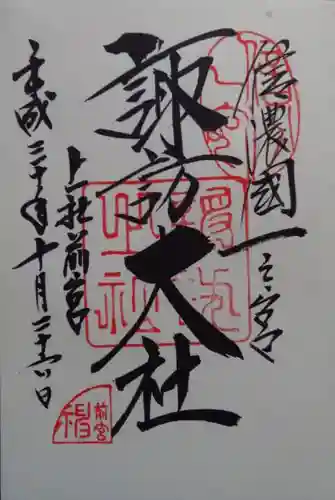 信濃國一之宮
諏訪大社
上社前宮
平成三十年十月二十六日
前宮